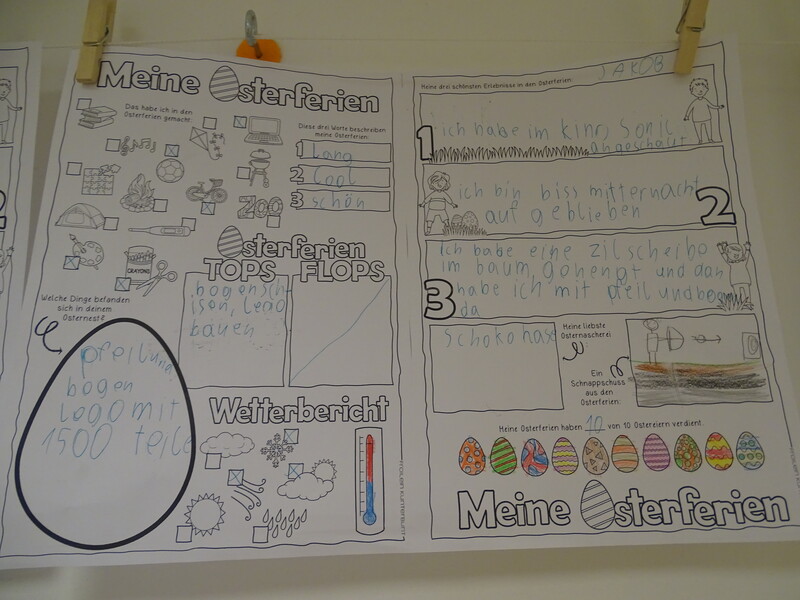 Meine Osterferien
Das habe ich in den
Osterferien gemacht:
Diese drei Worte beschreiben
meine Osterferien:
1 Lang
2 Cool
3 schön
ZOO
CRAYONS
Osterferien
TOPS FLOPS
bogensch
isen, Lego
bauen
Welche Dinge befanden
sich in deinem
Osternest?
pfeil und
bogen
Lego mit
1500 teile
Wetterbericht
JAKOB
Meine drei schönsten Erlebnisse in den Osterferien:
1 ich habe im kino Sonic
angeschaut
2 ich bin biss mitternacht
auf geblieben
3 ich habe eine zilscheibe
im baum, gehengt und dan
habe ich mit pfeil und bogen
da
Schoko hase
Meine liebste
Osternascherei.
Ein
Schnappschuss
aus den
Osterferien:
Meine Osterferien haben 10 von 10 Ostereiern verdient.
Meine Osterferien